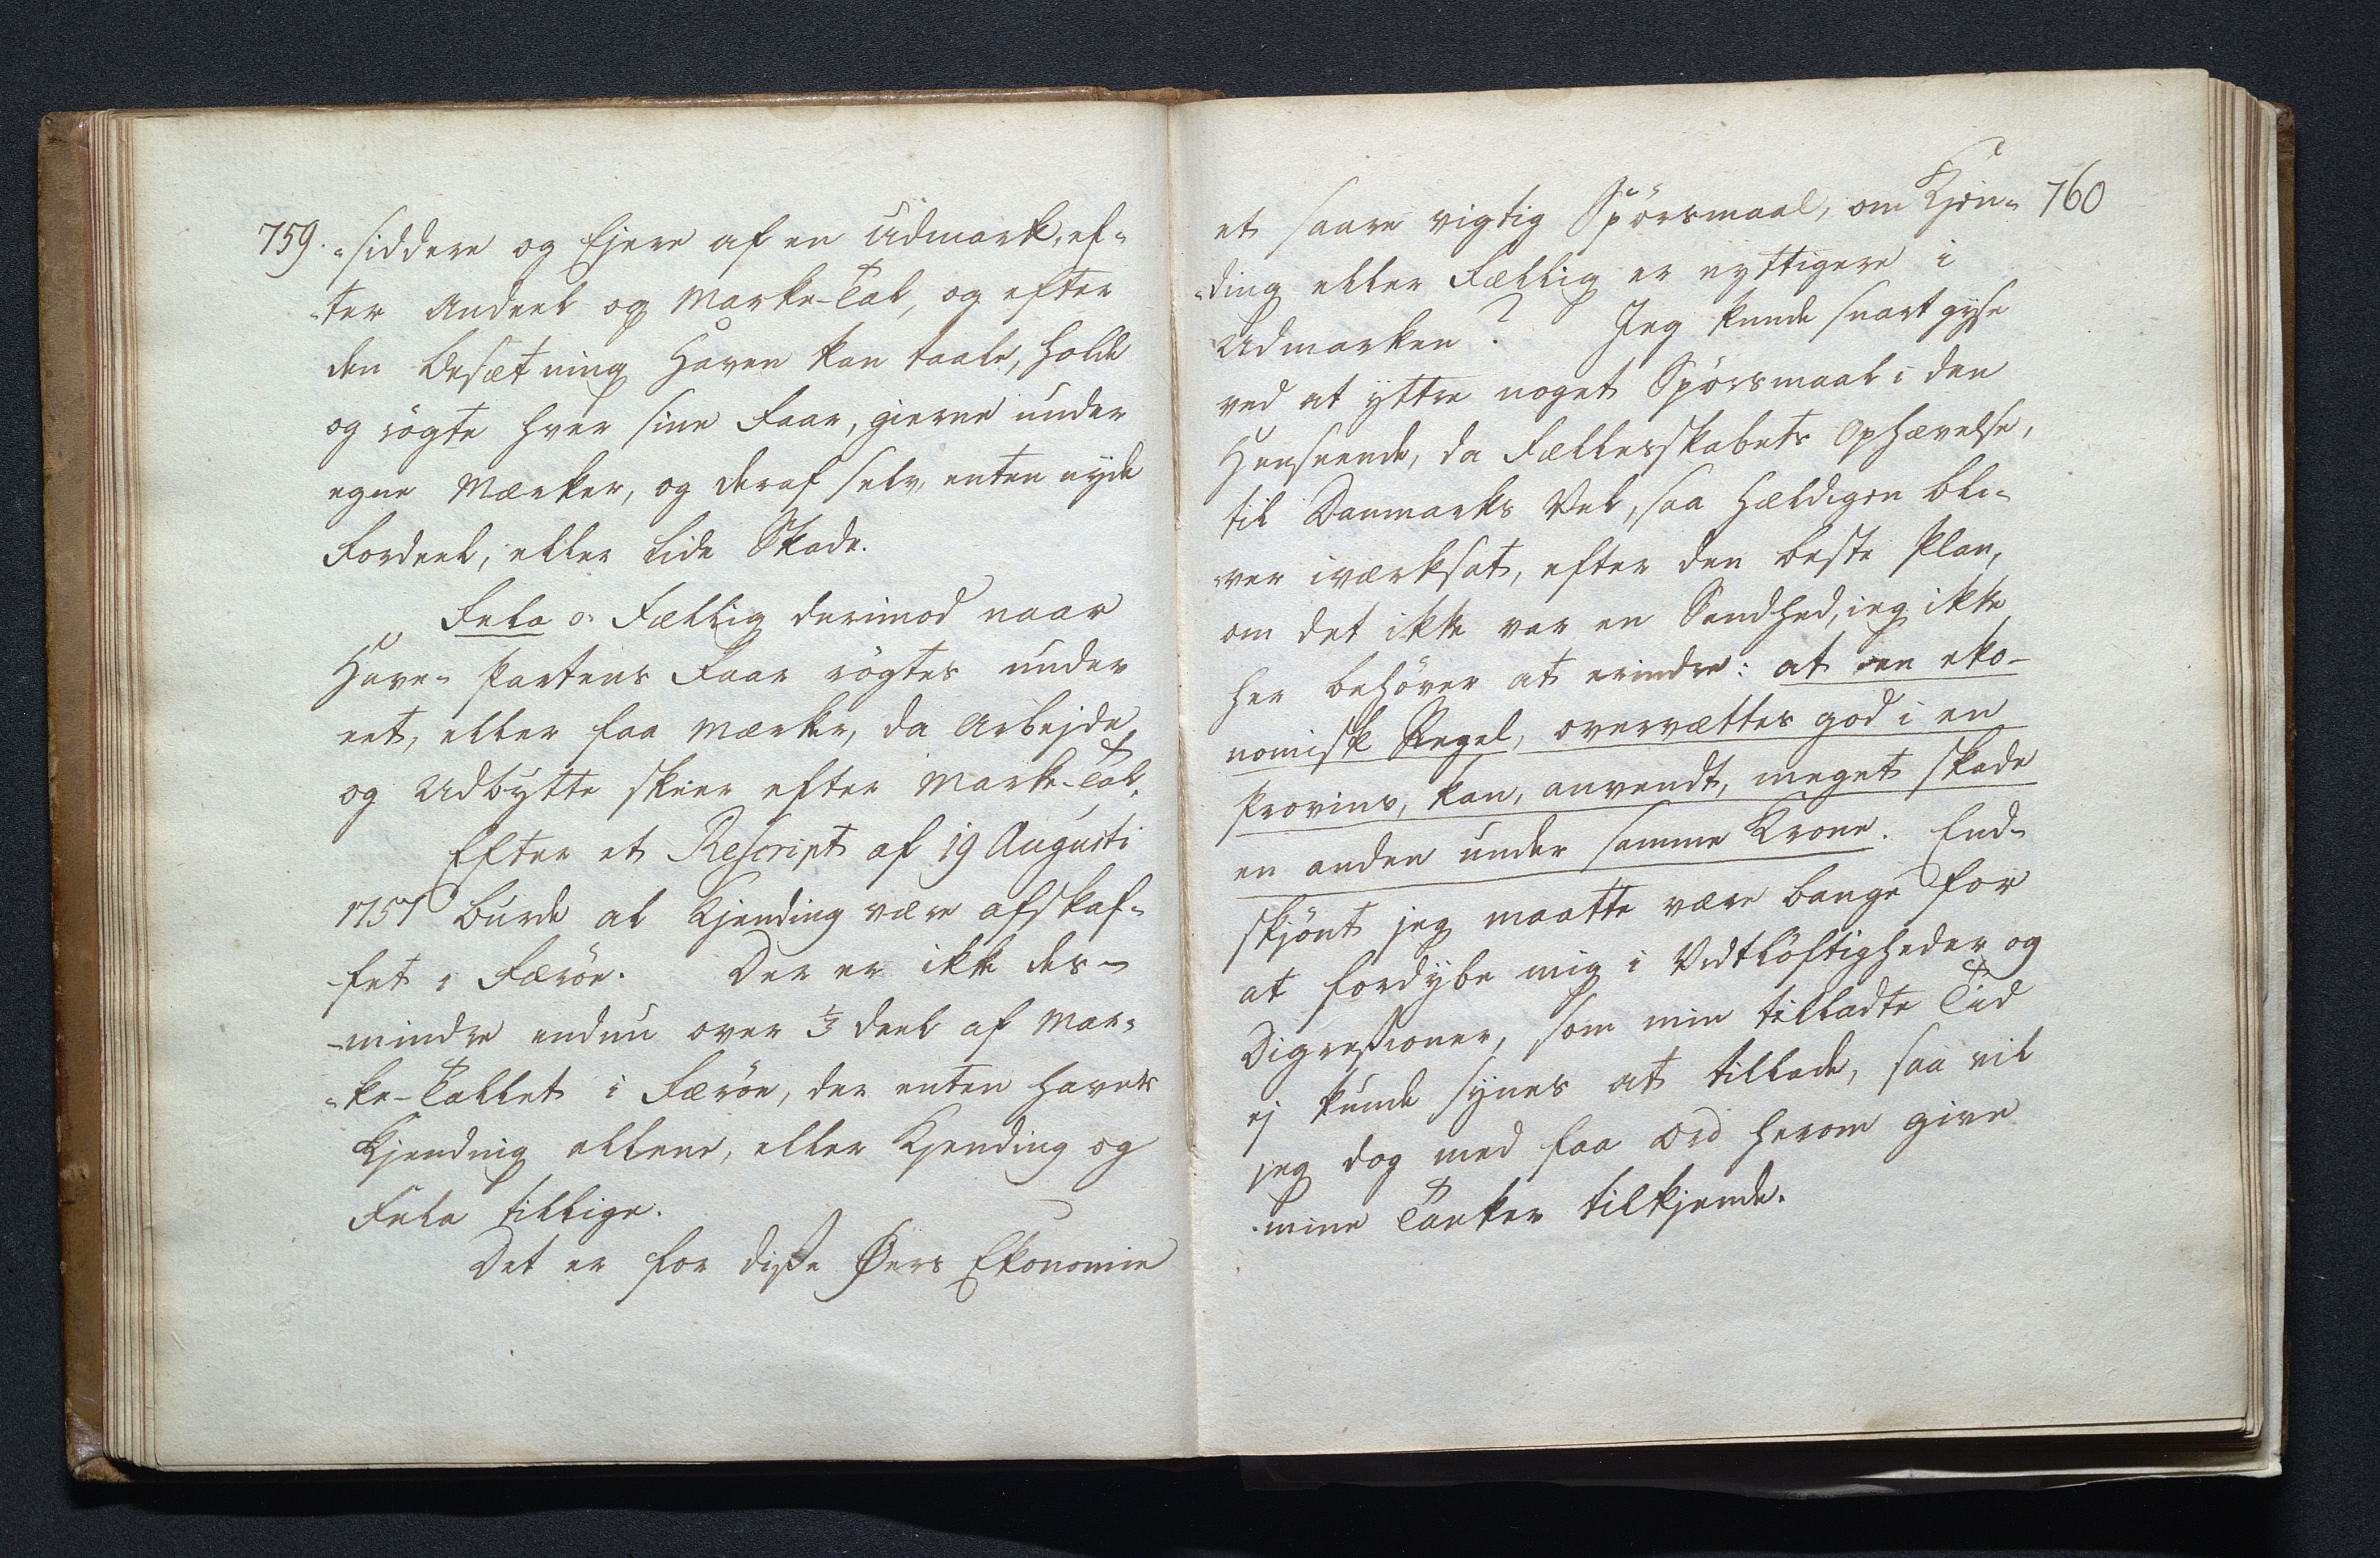 759. -siddere og Ejere af en Udmark, ef-
-ter Andeel og Marke-Tal, og efter
den Besætning Haven kan taale, holde
og rögte hver sine Faar, gierne under
egne Mærker, og deraf selv, enten nyde
Fordeel, eller lide Skade.
Fela o: Fællig derimod naar
Have-Partens Faar rögtes under
eet, eller faa Mærker, da Arbejde
og Udbytte skeer efter Marke-Tal.
Efter et Rescript af 19 Augusti
1757 burde al Kjending være afskaf-
-fet i Færöe. Der er ikke des-
-mindre endnu over ⅓ deel af Mar-
-ke-Tallet i Færöe, der enten haves
Kjending allene, eller Kjending og
Fela tillige.
Det er for disse Øers Ekonomie
760
et saare vigtig Spörsmaal, om Kjen-
-ding eller Fællig er nyttigere i
Udmarken? Jeg kunde snart gyse
ved at yttre noget Spörsmaal i den
Henseende, da Fællesskabets Ophævelse,
til Danmarks Vel, saa Hældigen bli-
-ver iværksat, efter den beste Plan,
om det ikke var en Sandhed, ieg ikke
her behöver at erindre: at en eko-
nomisk Regel, overvættes god i en
Provins, kan, anvendt, meget skade
en anden under samme Krone. End-
skjönt jeg maatte være bange for
at fordybe mig i Vidtlöftigheder og
Digressioner, som min tilladte Tid
ej kunde synes at tillade, saa vil
jeg dog med faa Ord herom give
mine Tanker tilkjende.